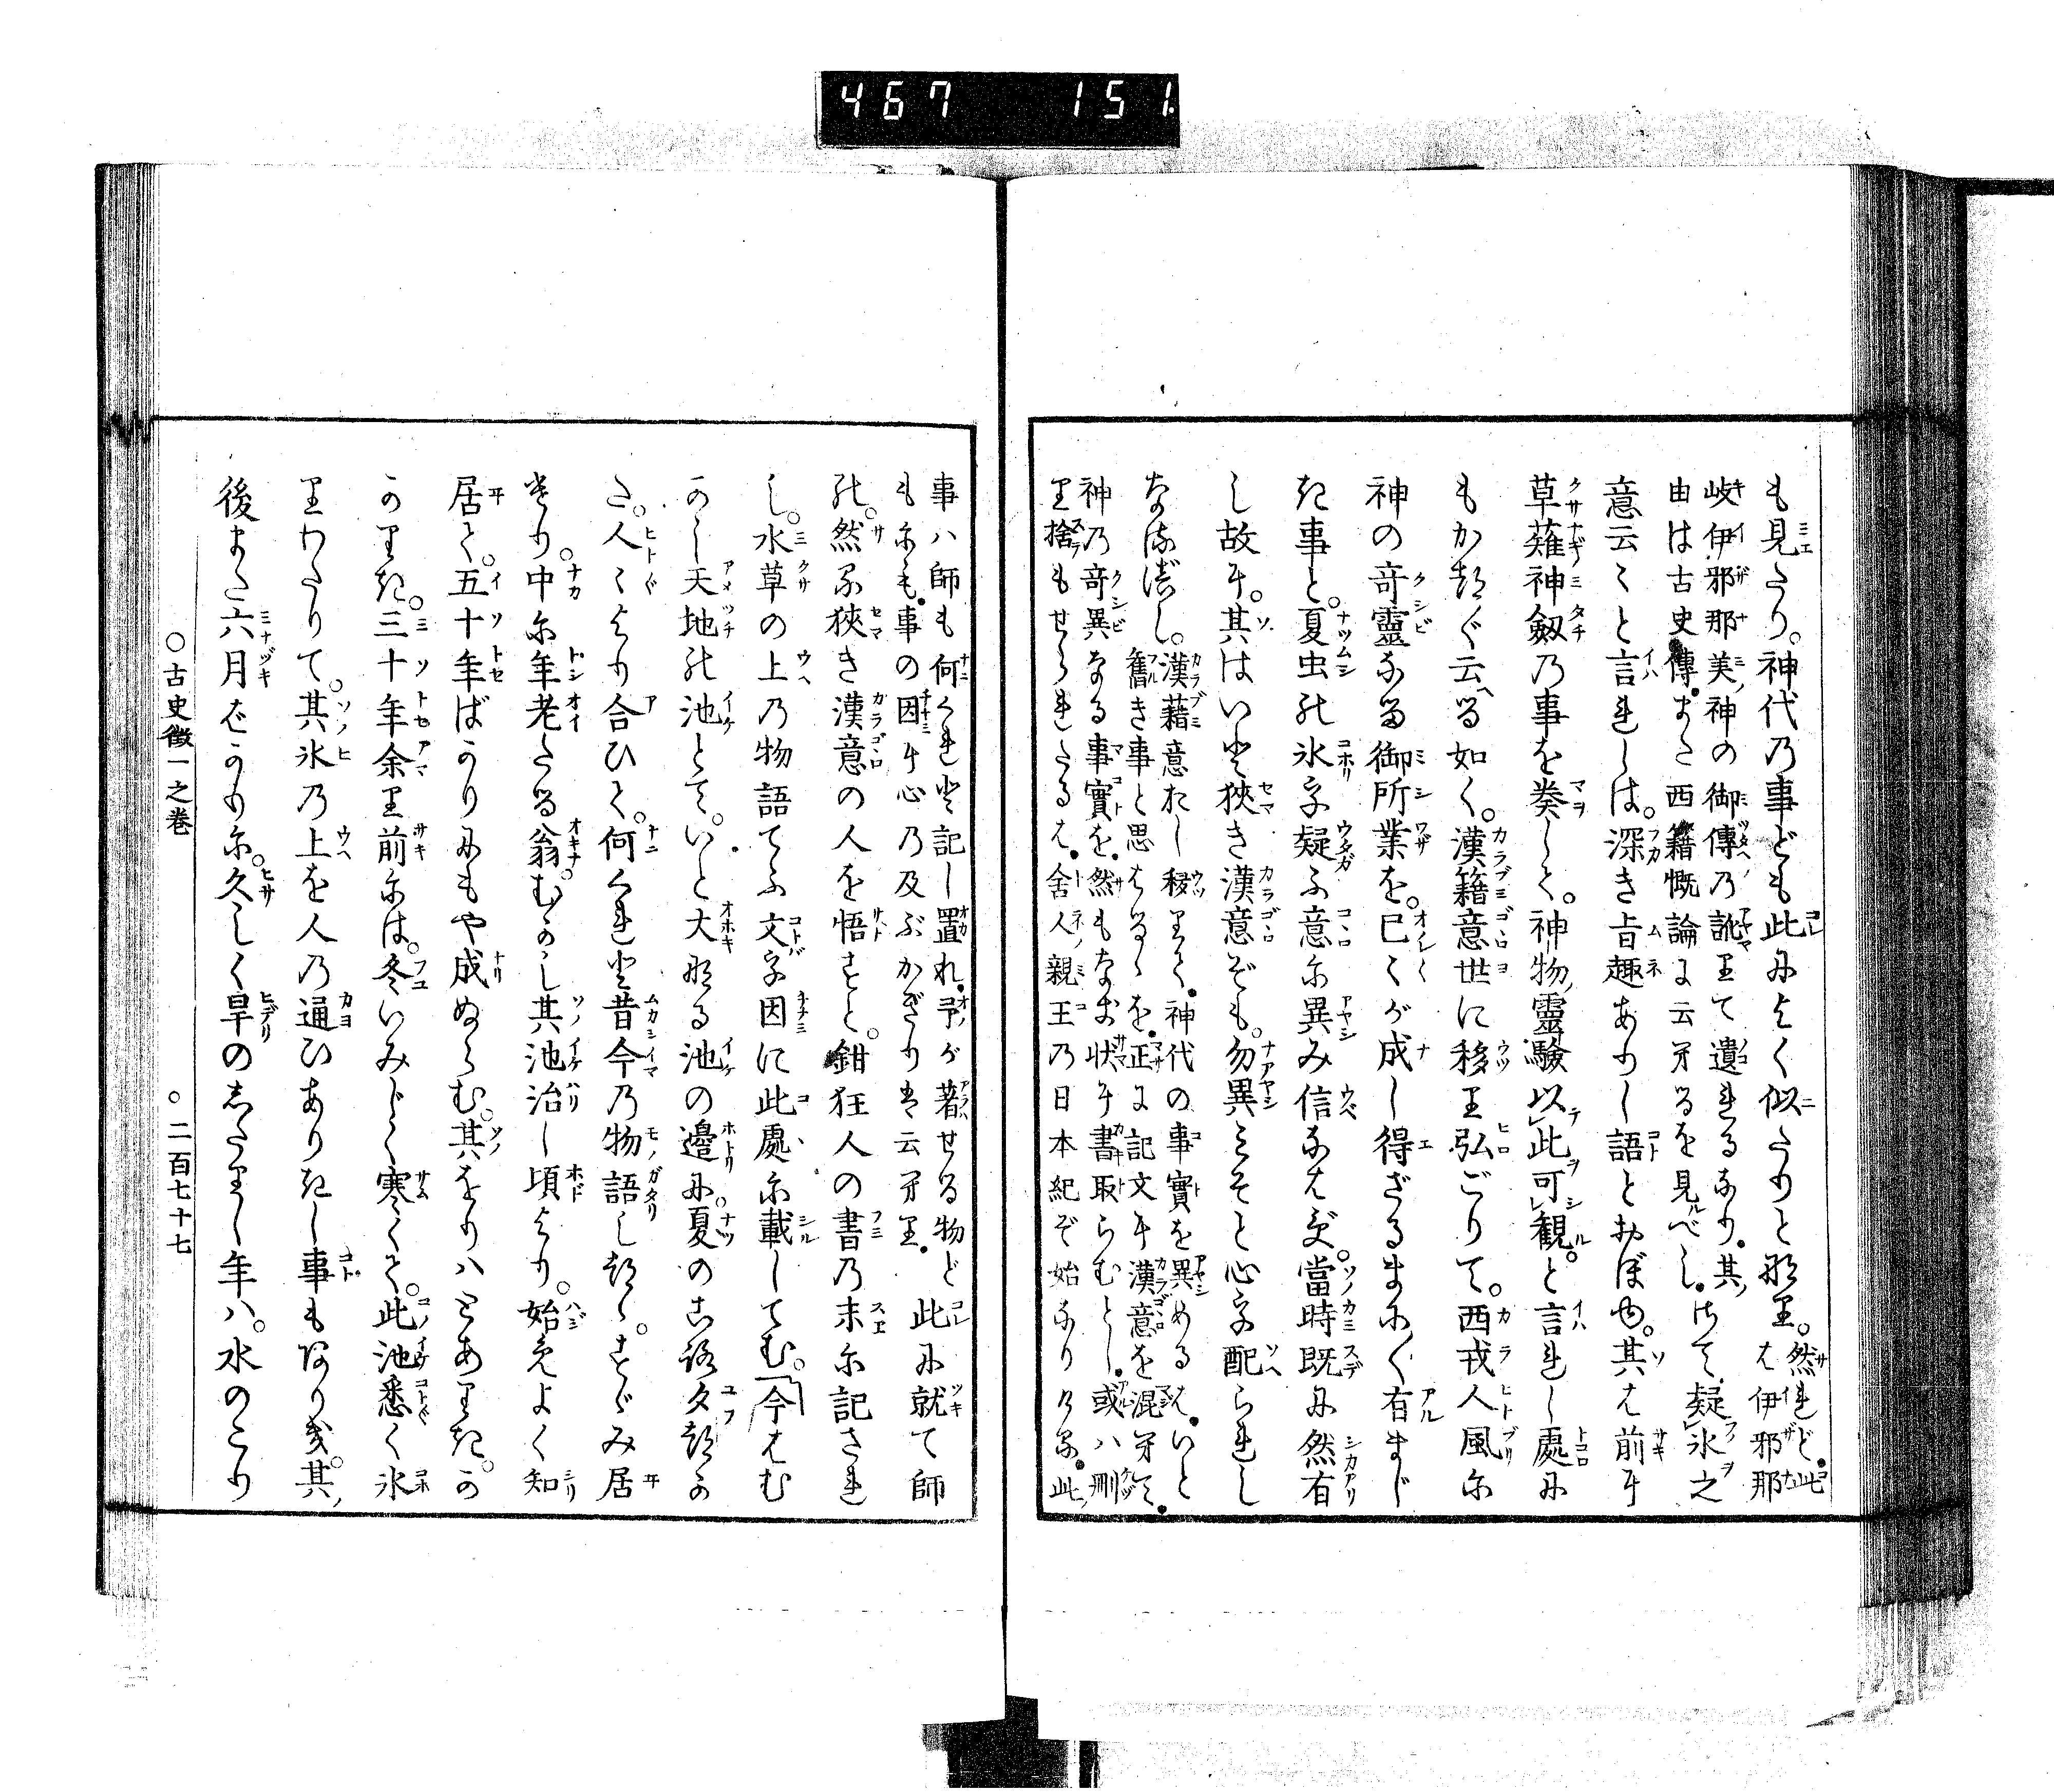 467 151
も見えたり。神代乃事ども此によく似たりと那里。然れど。此
は伊邪那
岐伊邪那美神の御傳乃訛りて遺れるなり。其
由は古史傳。また西籍慨論に云るを見べし。さて疑氷之
意云々と言れしは。深き旨趣ありし語とおぼゆ。其は前に
草薙神劔乃事を奏して。神物靈驗以此可観。と言れし處に
もかたぐ云へる如く。漢籍意世に移り弘ごりて。西戎人風に
神の奇靈なる御所業を。己々が成し得ざるまに〱有まじ
き事と。夏虫の氷を疑ふ意に異み信なはず。當時既に然有
し故に。其はいと狹き漢意ぞも。勿異みそと心を配られし
なるべし。漢藉意おし移りて。神代の事實を異めるは。いと
舊き事と思はるゝを。正に記文に漢意を混て。
神乃奇異なる事實を。然もなき状に書取らむとし。或ハ刪
り捨もせられたるは。舍人親王乃日本紀ぞ始なりける。此
事ハ師も何くれと記し置れ。予が著せる物ど
もにも。事の因に心乃及ぶかぎりは云り。此に就て師
の。然る狹き漢意の人を悟すと。鉗狂人の書乃末に記され
し。水草の上乃物語てふ文を因に此處に載してむ。「今はむ
かし天地の池とて。いと大なる池の邊に。夏のころ夕かた
た。人々より合ひて。何くれと昔今乃物語しける。すゞみ居
たり。中に年老たる翁。むかし其池治し頃より。始めよく知
居て。五十年ばかりにもや成ぬらむ。其をりハとありき。か
かりき。三十年余り前には。冬いみじく寒くて。此池悉く氷
りわたりて。其氷乃上を人乃通ひありきし事もありき。其
後また六月ばかりに。久しく旱のしたりし年ハ。水のこり
○古史徴一之巻 ○二百七十七